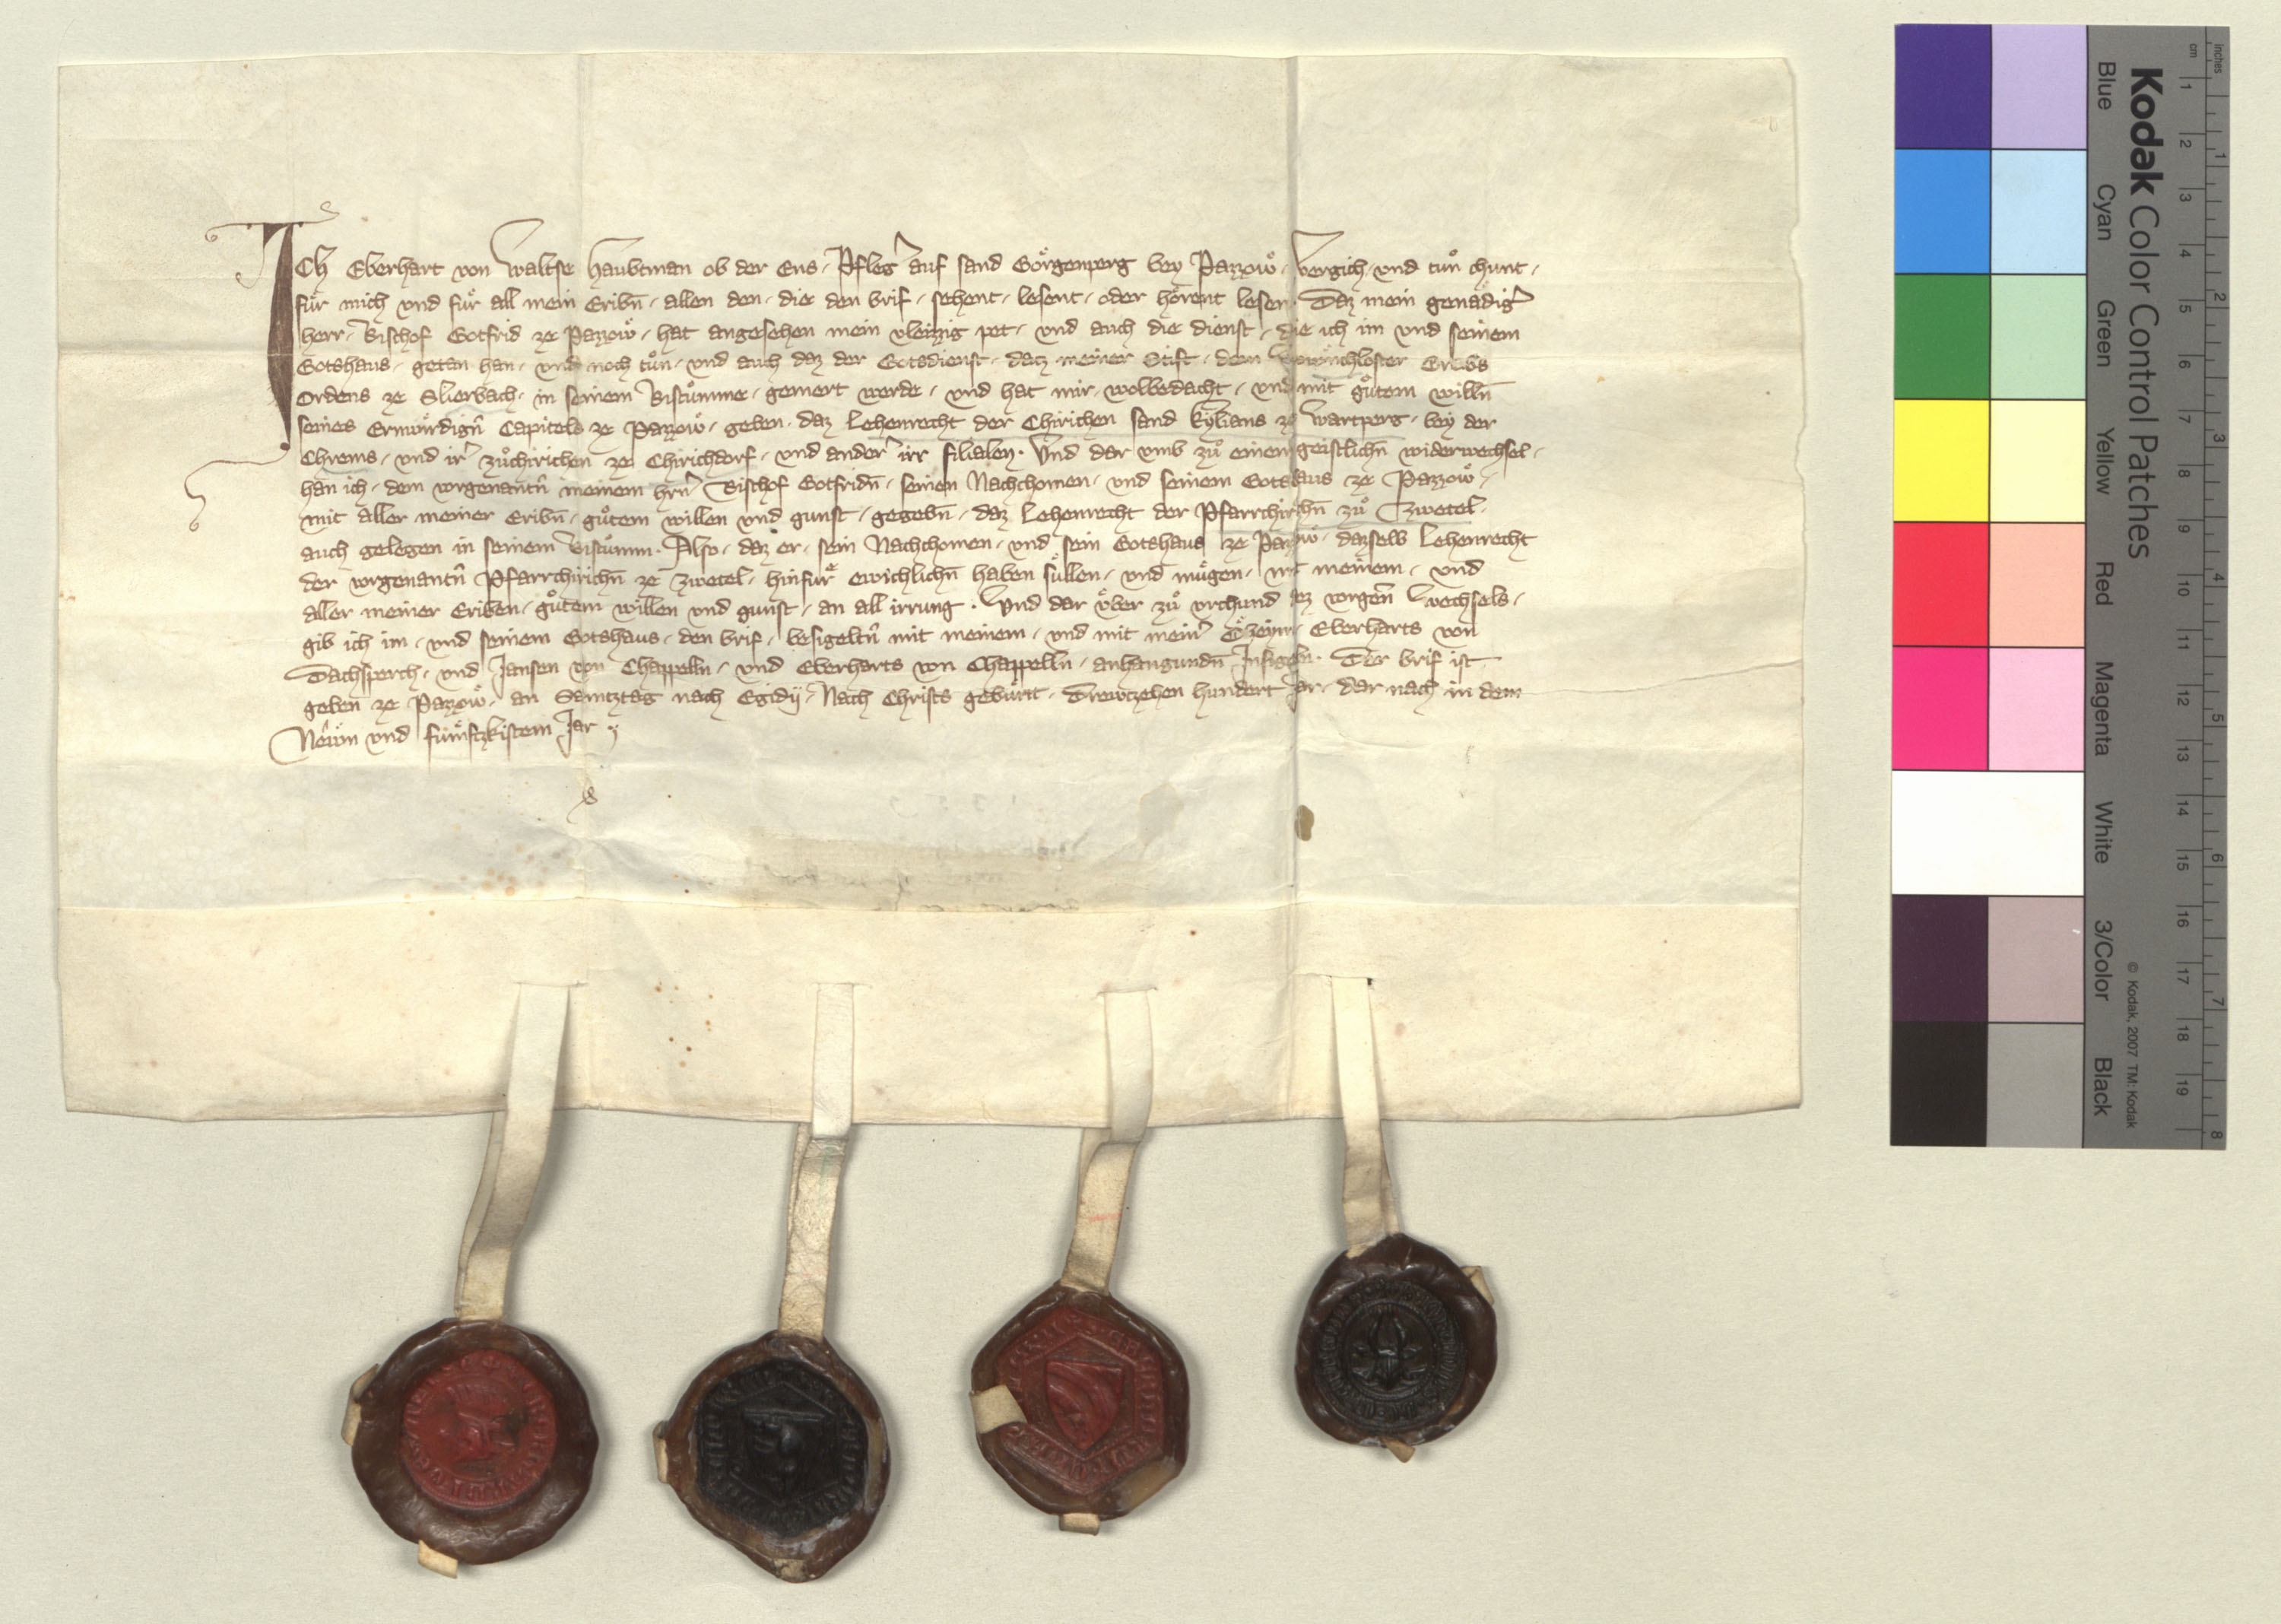 Ich Eberhart von Waltse Haubtman ob der Ens, Pfleg̉ auf sand Goͤrgenperg bey Pazzoẘ, vergich, vnd tuͦn chunt,
fuͤr mich vnd fuͤr all mein Eribn̄, allen den, die den brif, sehent, lesent, oder hoͤrent lesen. Daz mein genadig̉
herr, Bischof Gotfrid ze Pazzoẘ, hat angesehen mein vleizzig pet, vnd auch die dienst, die ich im vnd seinem
Gotshaus, getan han, vnd noch tuͦn, vnd auch daz der Gotsdienst, datz meiner Stift, dem Grabs
Ordens ze Slierbach, in seinem Bistuͦmme, gemert werde, vnd hat mir, wolbedacht, vnd mit guͦtem willn̄
seines Erwuͤrdign̄ Capitels ze Pazzoẘ, geben, daz Lehenrecht der Chirichen sand Kylians ze Wartperg, bey der
Chrems, vnd ir̉ zuͦchirichen ze Chirichdorf, vnd ander̉ irr filialen. Vnd dar vmb zuͦ einem geistlichn̄ widerwechsel,
han ich, dem vorgenantn̄ meinem hrn̄ Bischof Gotfridn̄, seinen Nachchomen, vnd seinem Gotshaus ze Pazzoẘ,
mit aller meiner Eribn̄, guͦtem willen vnd gunst, gegebn̄, daz Lehenrecht der Pfarrchirichn̄ zuͦ Zwetel,
auch gelegen in seinem Bistuͦmm. Also, daz er, sein Nachchomen, vnd sein Gotshaus ze Pazzoẘ, dazselb Lehenrecht
der vorgenantn̄ Pfarrchirichn̄ ze Zwetel, hinfuͤr ewichlichn̄ haben suͤllen, vnd muͤgen, mit meinem, vnd
aller meiner Eriben, guͦtem willen vnd gunst, an all irrung. Vnd dar vͤber zuͦ vrchund dez vorgen̄ Wechsels,
gib ich im, vnd seinem Gotshaus, den brif, besigeltn̄ mit meinem, vnd mit mein̉ Eberharts von
Dachsperch, vnd Jansen von Chappelln, vnd Eberharts von Chappelln̄, anhangundn̄ Insigeln. Der brif ist
geben ze Pazzoẘ, an Samtztag nach Egidij, Nach Christs gebuͤrtt, Drewtzehen hundert Jar, dar nach in dem
Neẘn vnd fuͤmftzkistem Jar
Kodak Color Control Patches
Blue Cyan Green Yellow Red Magenta White 3/Color Black
© Kodak, 2007 TM: Kodak
cm 1 2 3 4 5 6 7 8 9 10 11 12 13 14 15 16 17 18 19
inches 1 2 3 4 5 6 7 8